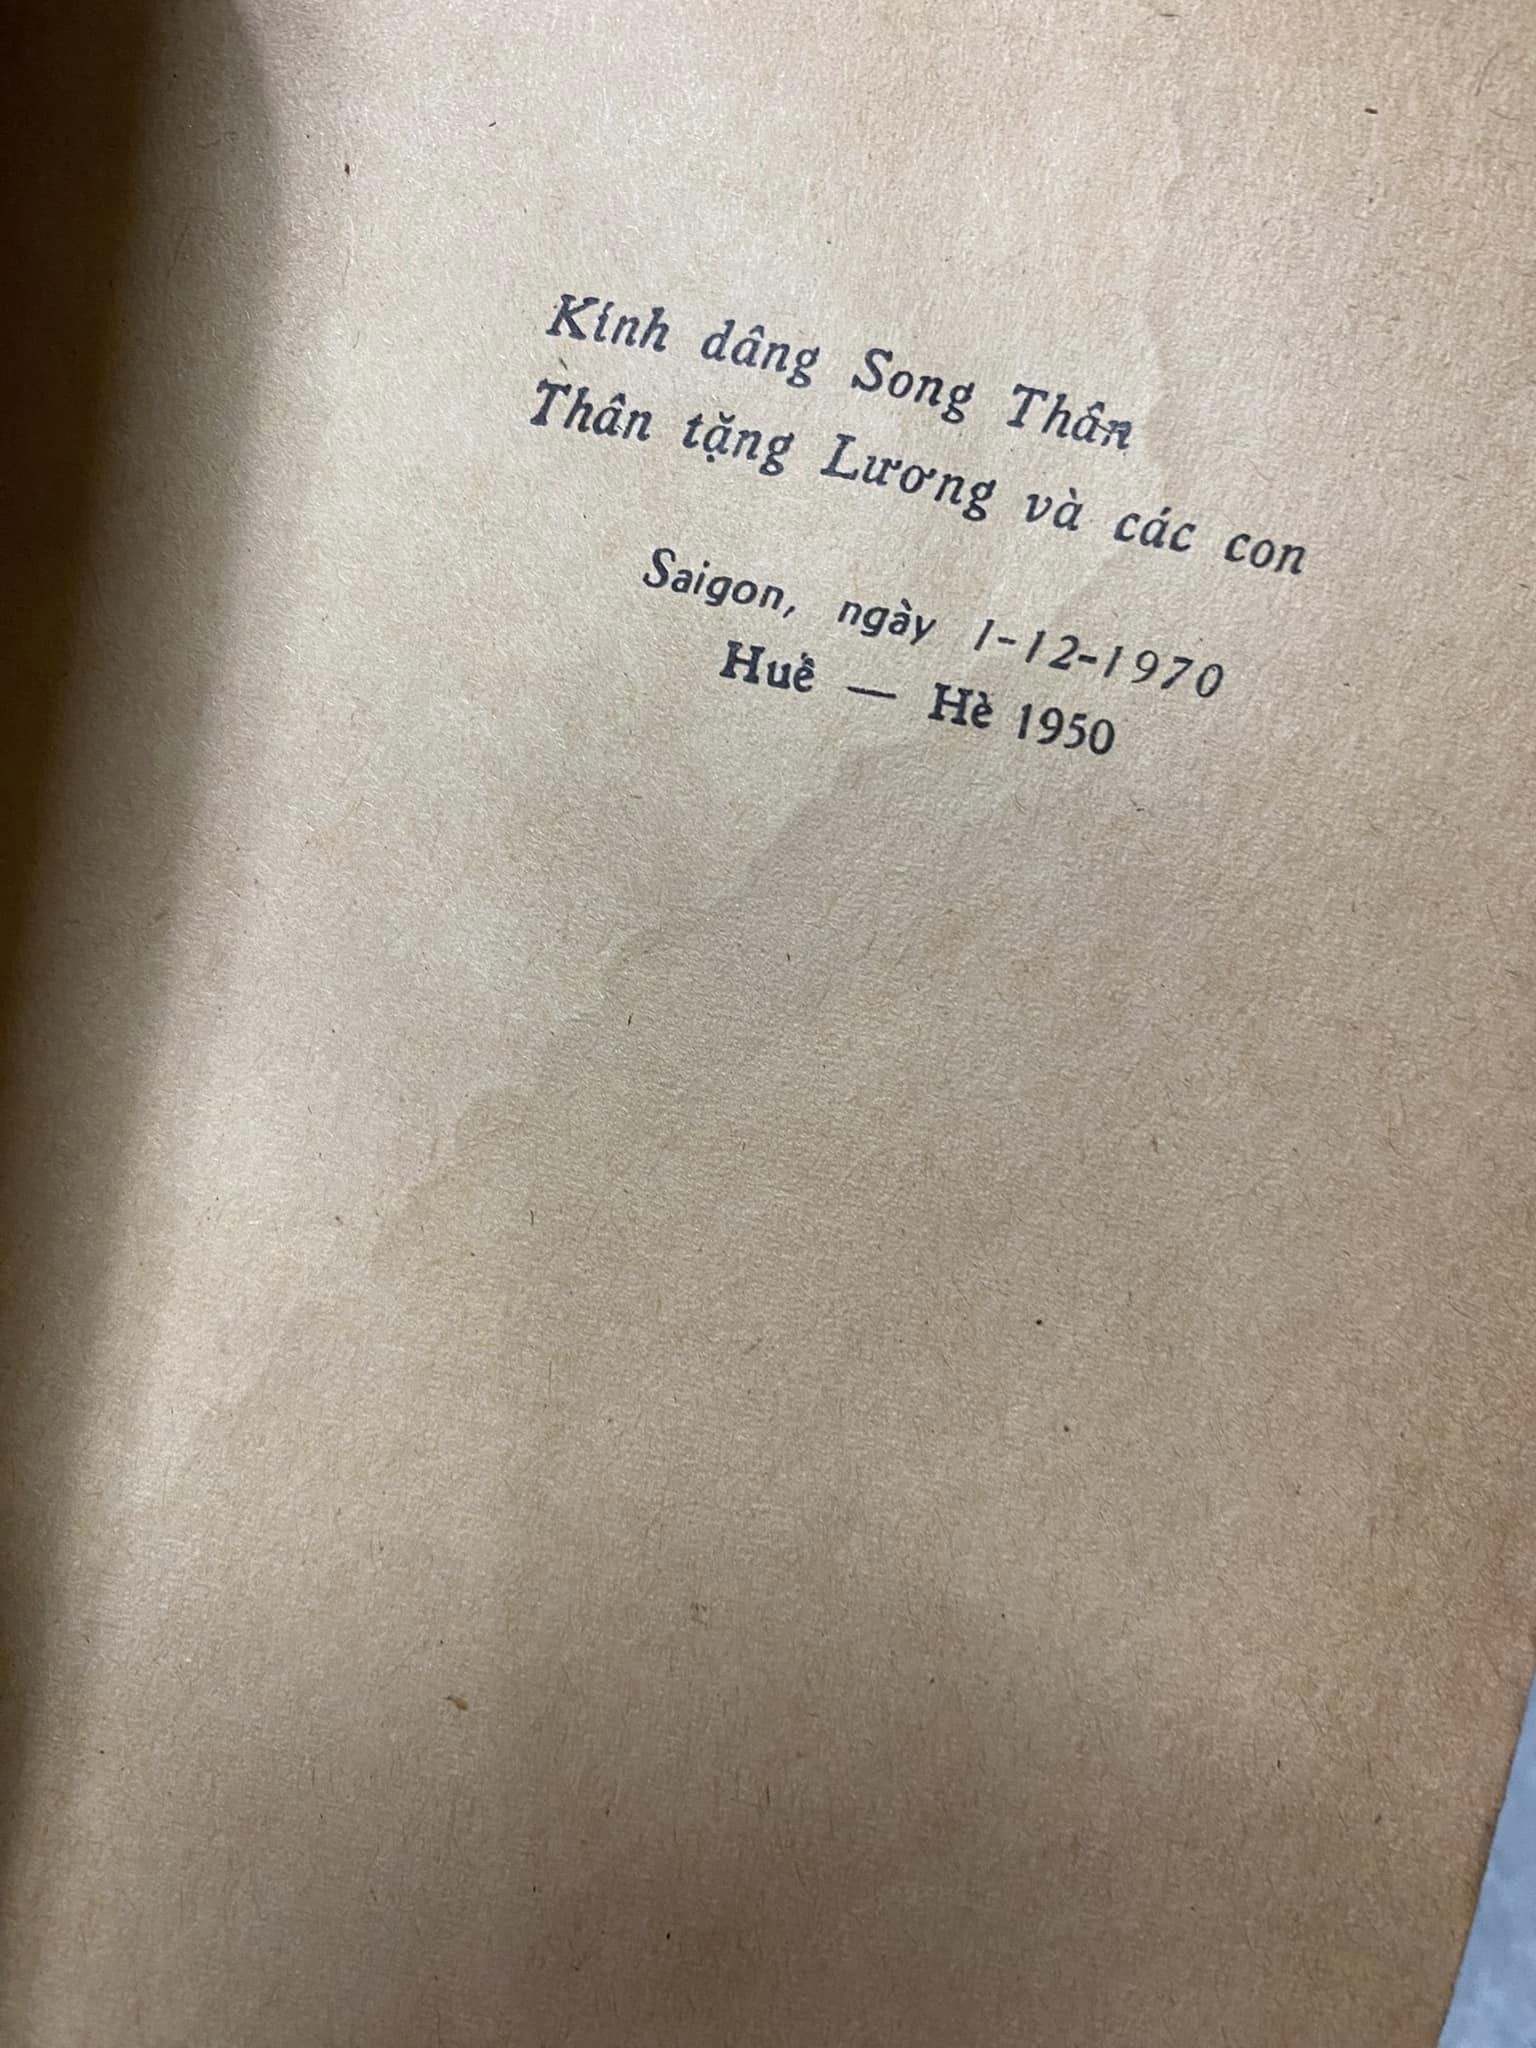 Kính dâng Song Thân
Thân tặng Lương và các con
Saigon, ngày 1-12-1970
Huế — Hè 1950